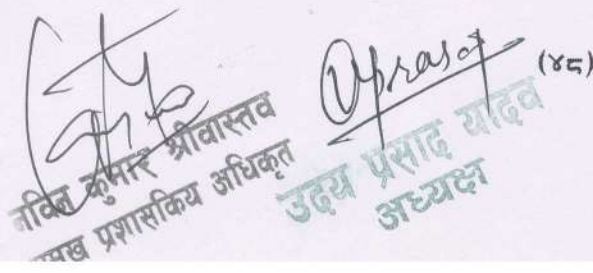 (४८)
नविन कुमार श्रीवास्तव
प्रमुख प्रशासकिय अधिकृत
उदय प्रसाद यादव
अध्यक्ष